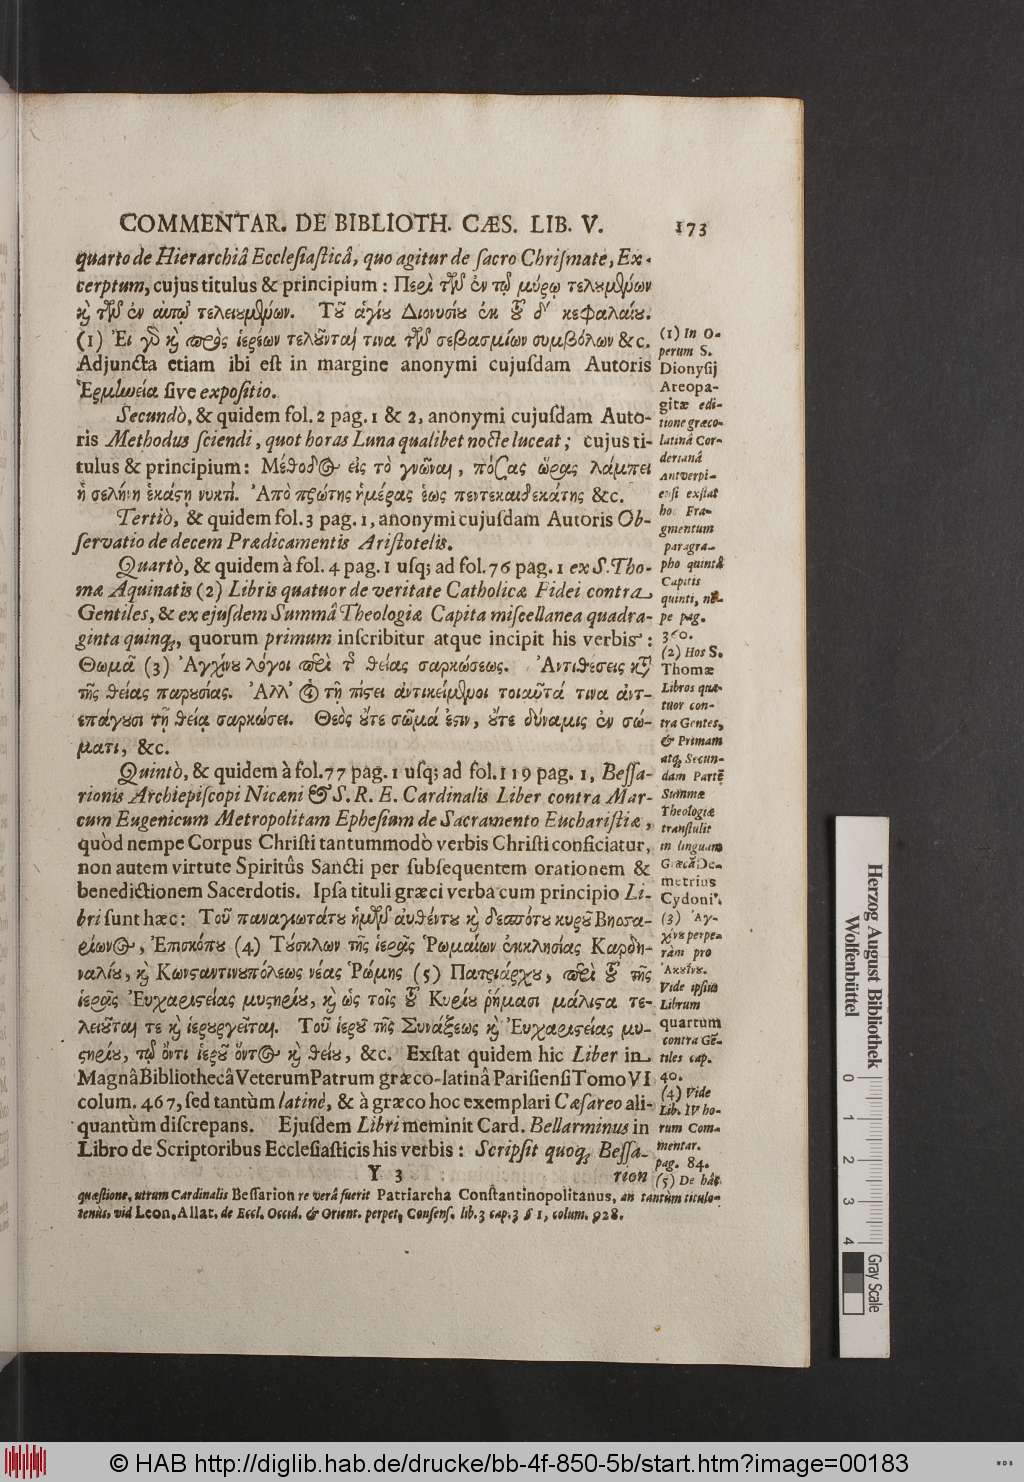 COMMENTAR. DE BIBLIOTH. CÆS. LIB. V. 173
quarto de Hierarchiâ Ecclesiasticâ, quo agitur de sacro Chrismate, Ex-
cerptum, cujus titulus & principium: Περὶ τῶν ἐν τῷ μύρῳ τελουμένων
καὶ τῶν ἐν αὐτῷ τελειουμένων. Τοῦ ἁγίου Διονυσίου ἐκ τοῦ δʹ κεφαλαίου.
(1) Ἔι γὸ καὶ πρὸς ἱερέων τελοῦνται τινα τῶν σεβασμίων συμβόλων &c.
Adjuncta etiam ibi est in margine anonymi cujusdam Autoris
Ἑρμηνεία sive expositio.
Secundò, & quidem fol. 2 pag. 1 & 2, anonymi cujusdam Auto-
ris Methodus sciendi, quot horas Luna qualibet nocte luceat; cujus ti-
tulus & principium: Μέθοδος εἰς τὸ γνῶναι, πόσας ὥρας λάμπει
ἡ σελήνη ἑκάστῃ νυκτί. Ἀπὸ πρώτης ἡμέρας ἕως πεντεκαιδεκάτης &c.
Tertiò, & quidem fol. 3 pag. 1, anonymi cujusdam Autoris Ob-
servatio de decem Prædicamentis Aristotelis.
Quartò, & quidem à fol. 4 pag. 1 usq; ad fol. 76 pag. 1 ex S. Tho-
mæ Aquinatis (2) Libris quatuor de veritate Catholicæ Fidei contra
Gentiles, & ex ejusdem Summâ Theologiæ Capita miscellanea quadra-
ginta quinq;, quorum primum inscribitur atque incipit his verbis:
Θωμᾶ (3) Ἀγχίνου λόγοι περὶ τῆς θείας σαρκώσεως. Ἀντιθέσεις κατὰ
τῆς θείας παρουσίας. Ἀλλ’ οἱ τῇ πίστει ἀντικείμενοι τοιαῦτά τινα ἀντ-
επάγουσι τῇ θείᾳ σαρκώσει. Θεὸς οὔτε σῶμά ἐστιν, οὔτε δύναμις ἐν σώ-
ματι, &c.
Quintò, & quidem à fol. 77 pag. 1 usq; ad fol. 119 pag. 1, Bessa-
rionis Archiepiscopi Nicæni & S. R. E. Cardinalis Liber contra Mar-
cum Eugenicum Metropolitam Ephesium de Sacramento Eucharistiæ,
quòd nempe Corpus Christi tantummodò verbis Christi conficiatur,
non autem virtute Spiritûs Sancti per subsequentem orationem &
benedictionem Sacerdotis. Ipsa tituli græci verba cum principio Li-
bri sunt hæc: Τοῦ παναγιωτάτου ἡμῶν αὐθέντου καὶ δεσπότου κυροῦ Βησσα-
ρίωνος, Ἐπισκόπου (4) Τούσκλων τῆς ἱερᾶς Ῥωμαίων ἐκκλησίας Καρδη-
ναλίου, καὶ Κωνσταντινουπόλεως νέας Ῥώμης (5) Πατριάρχου, περὶ τοῦ τῆς
ἱερᾶς Ἐυχαριστείας μυστηρίου, καὶ ὡς τοῖς τοῦ Κυρίου ῥήμασι μάλιστα τε-
λειοῦται τε καὶ ἱερουργεῖται. Τοῦ ἱεροῦ τῆς Συνάξεως καὶ Ἐυχαριστείας μυ-
στηρίου, τῷ ὄντι ἱεροῦ ὄντος καὶ θείου, &c. Exstat quidem hic Liber in
Magnâ Bibliothecâ Veterum Patrum græco-latinâ Parisiensi Tomo VI
colum. 467, sed tantùm latinè, & à græco hoc exemplari Cæsareo ali-
quantùm discrepans. Ejusdem Libri meminit Card. Bellarminus in
Libro de Scriptoribus Ecclesiasticis his verbis: Scripsit quoq; Bessa-
Y 3 rion
(1) In O-
perum S.
Dionysij
Areopa-
gitæ edi-
tione græco-
latinâ Cor-
derianâ
Antverpi-
ensi exstat
hoc Fra-
gmentum
paragra-
pho quintâ
Capitis
quinti, ne-
pe pag.
360.
(2) Hos S.
Thomæ
Libros qua-
tuor con-
tra Gentes,
& Primam
atq; Secun-
dam Partẽ
Summæ
Theologiæ
transtulit
in linguam
Græcã De-
metrius
Cydoni⁹.
(3) Ἀγ-
χίνου perpe-
ràm pro
Ἀκυΐνου.
Vide ipsum
Librum
quartum
contra Gẽ-
tiles cap.
40.
(4) Vide
Lib. IV ho-
rum Com-
mentar.
pag. 84.
(5) De hâc
quæstione, utrum Cardinalis Bessarion re verâ fuerit Patriarcha Constantinopolitanus, an tantùm titulo-
tenus, vid Leon. Allat. de Eccl. Occid. & Orient. perpet. Consens. lib. 3 cap. 3 § 1, colum. 928.
Herzog August Bibliothek
Wolfenbüttel
0 1 2 3 4
Gray Scale
© HAB http://diglib.hab.de/drucke/bb-4f-850-5b/start.htm?image=00183